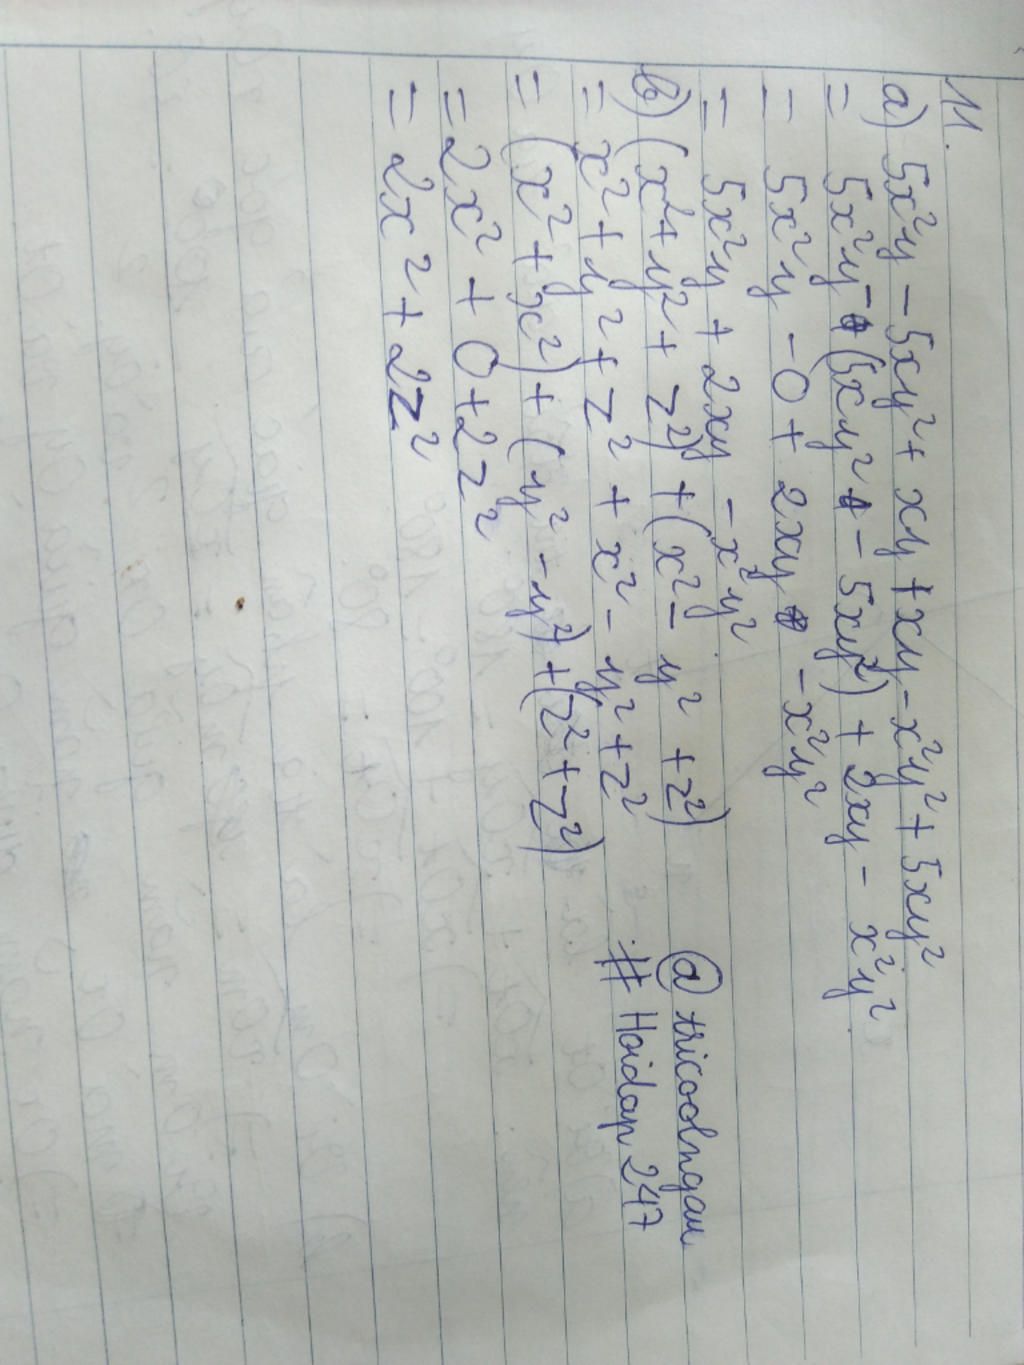 11.
a) 5x²y - 5xy² + xy + xy - x²y² + 5xy²
= 5x²y - (5xy² - 5xy²) + 2xy - x²y²
= 5x²y - 0 + 2xy - x²y²
= 5x²y + 2xy - x²y²
b) (x² + y² + z²) + (x² - y² + z²)
= x² + y² + z² + x² - y² + z²
= (x² + x²) + (y² - y²) + (z² + z²)
= 2x² + 0 + 2z²
= 2x² + 2z²
@ tricoolngau
# Hoidap 247